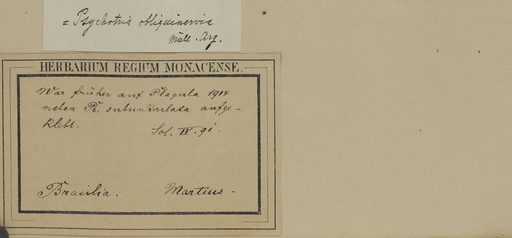 = Psychotria obliquinervis
Müll. Arg.
HERBARIUM REGIUM MONACENSE.
War früher auf Plagula 1904
neben Ps. subundulata aufge-
klebt.
Sol. IX. 91.
Brasilia. Martius.